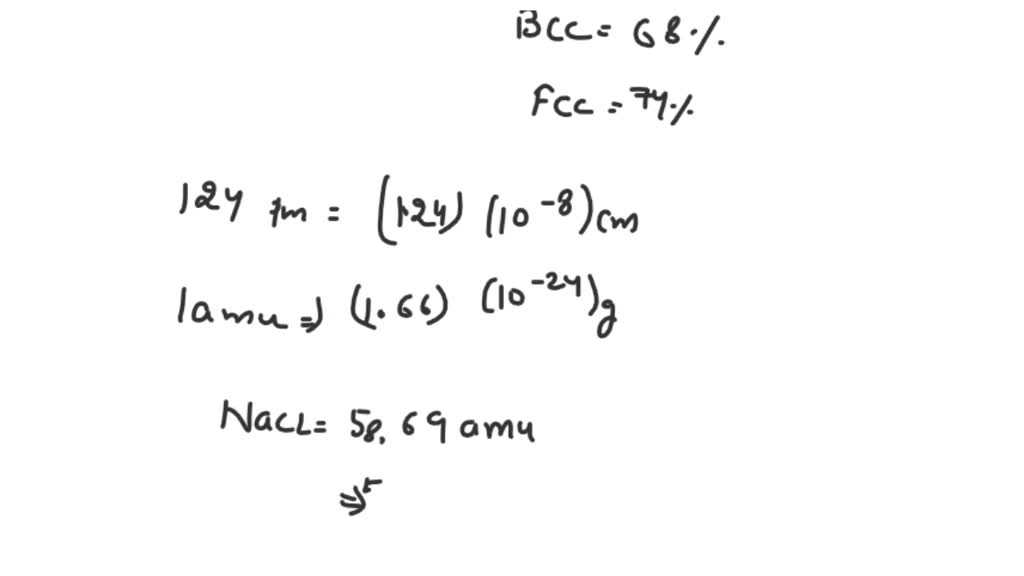 BCC = 68%
FCC = 74%
124 pm = (1.24) (10^-8) cm
1amu => (1.66) (10^-24)g
NaCL = 58.69 amu
=>